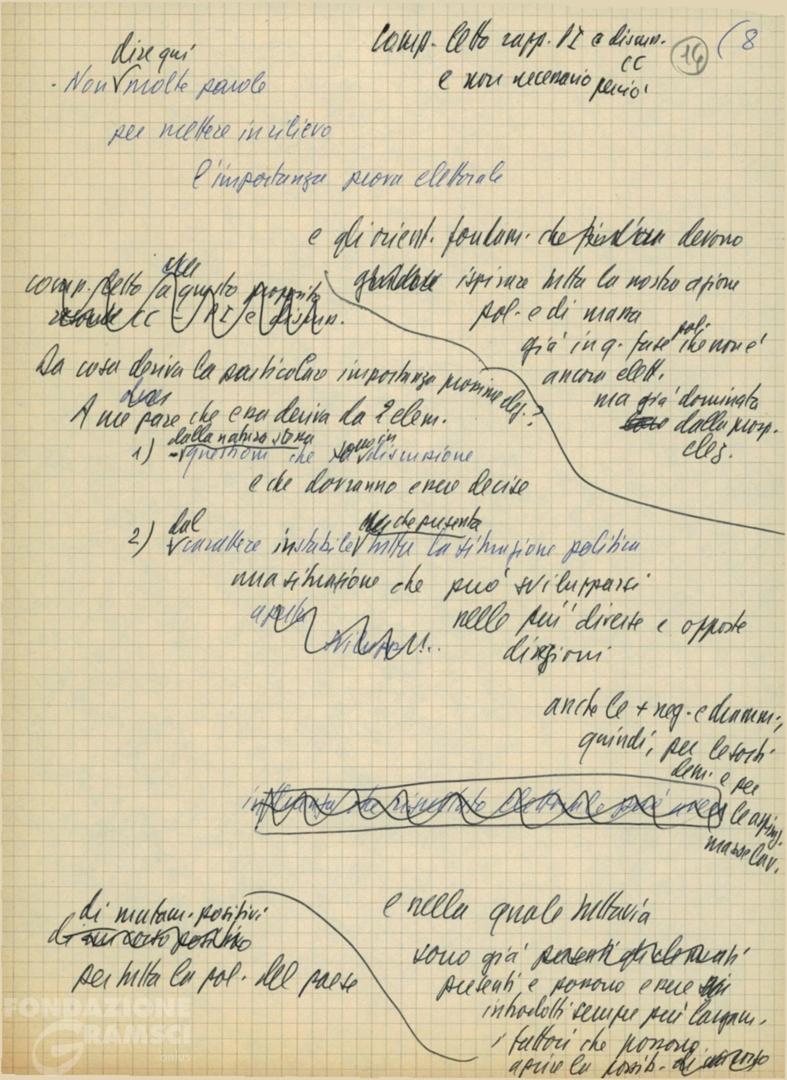 comp. letto rapp. PI e discuss. CC
e non necessario perciò
14
(8
dire qui
- Non molte parole
per mettere in rilievo
l'importanza prova elettorale
e gli orient. fondam. che devono
ispirare tutta la nostra azione
pol. e di massa
già in q. fase pol. che non è
ancora elett.
ma già dominata
dalla prosp.
elez.
comp. letto che a questo proposito
CC PI e discuss.
Da cosa deriva la particolare importanza prossime elez.?
A me pare che essa deriva da 2 elem.
1) - dalla natura stessa questioni che sono in discussione
e che dovranno essere decise
2) dal carattere instabile che presenta tutta la situazione politica
una situazione che può svilupparsi
nelle più diverse e opposte
direzioni
aperta
sviluppi..
anche le + neg. e dramm.,
quindi, per le sorti
dem. e per
le aspiraz.
masse lav.
influenza che risultato elettorale può avere
e nella quale tuttavia
sono già presenti gli elementi
presenti e possono essere
introdotti sempre più largam.
i fattori che possono
aprire la possib. di un corso
di mutam. positivi
di un corso positivo
per tutta la pol. del paese
FONDAZIONE
GRAMSCI
ONLUS